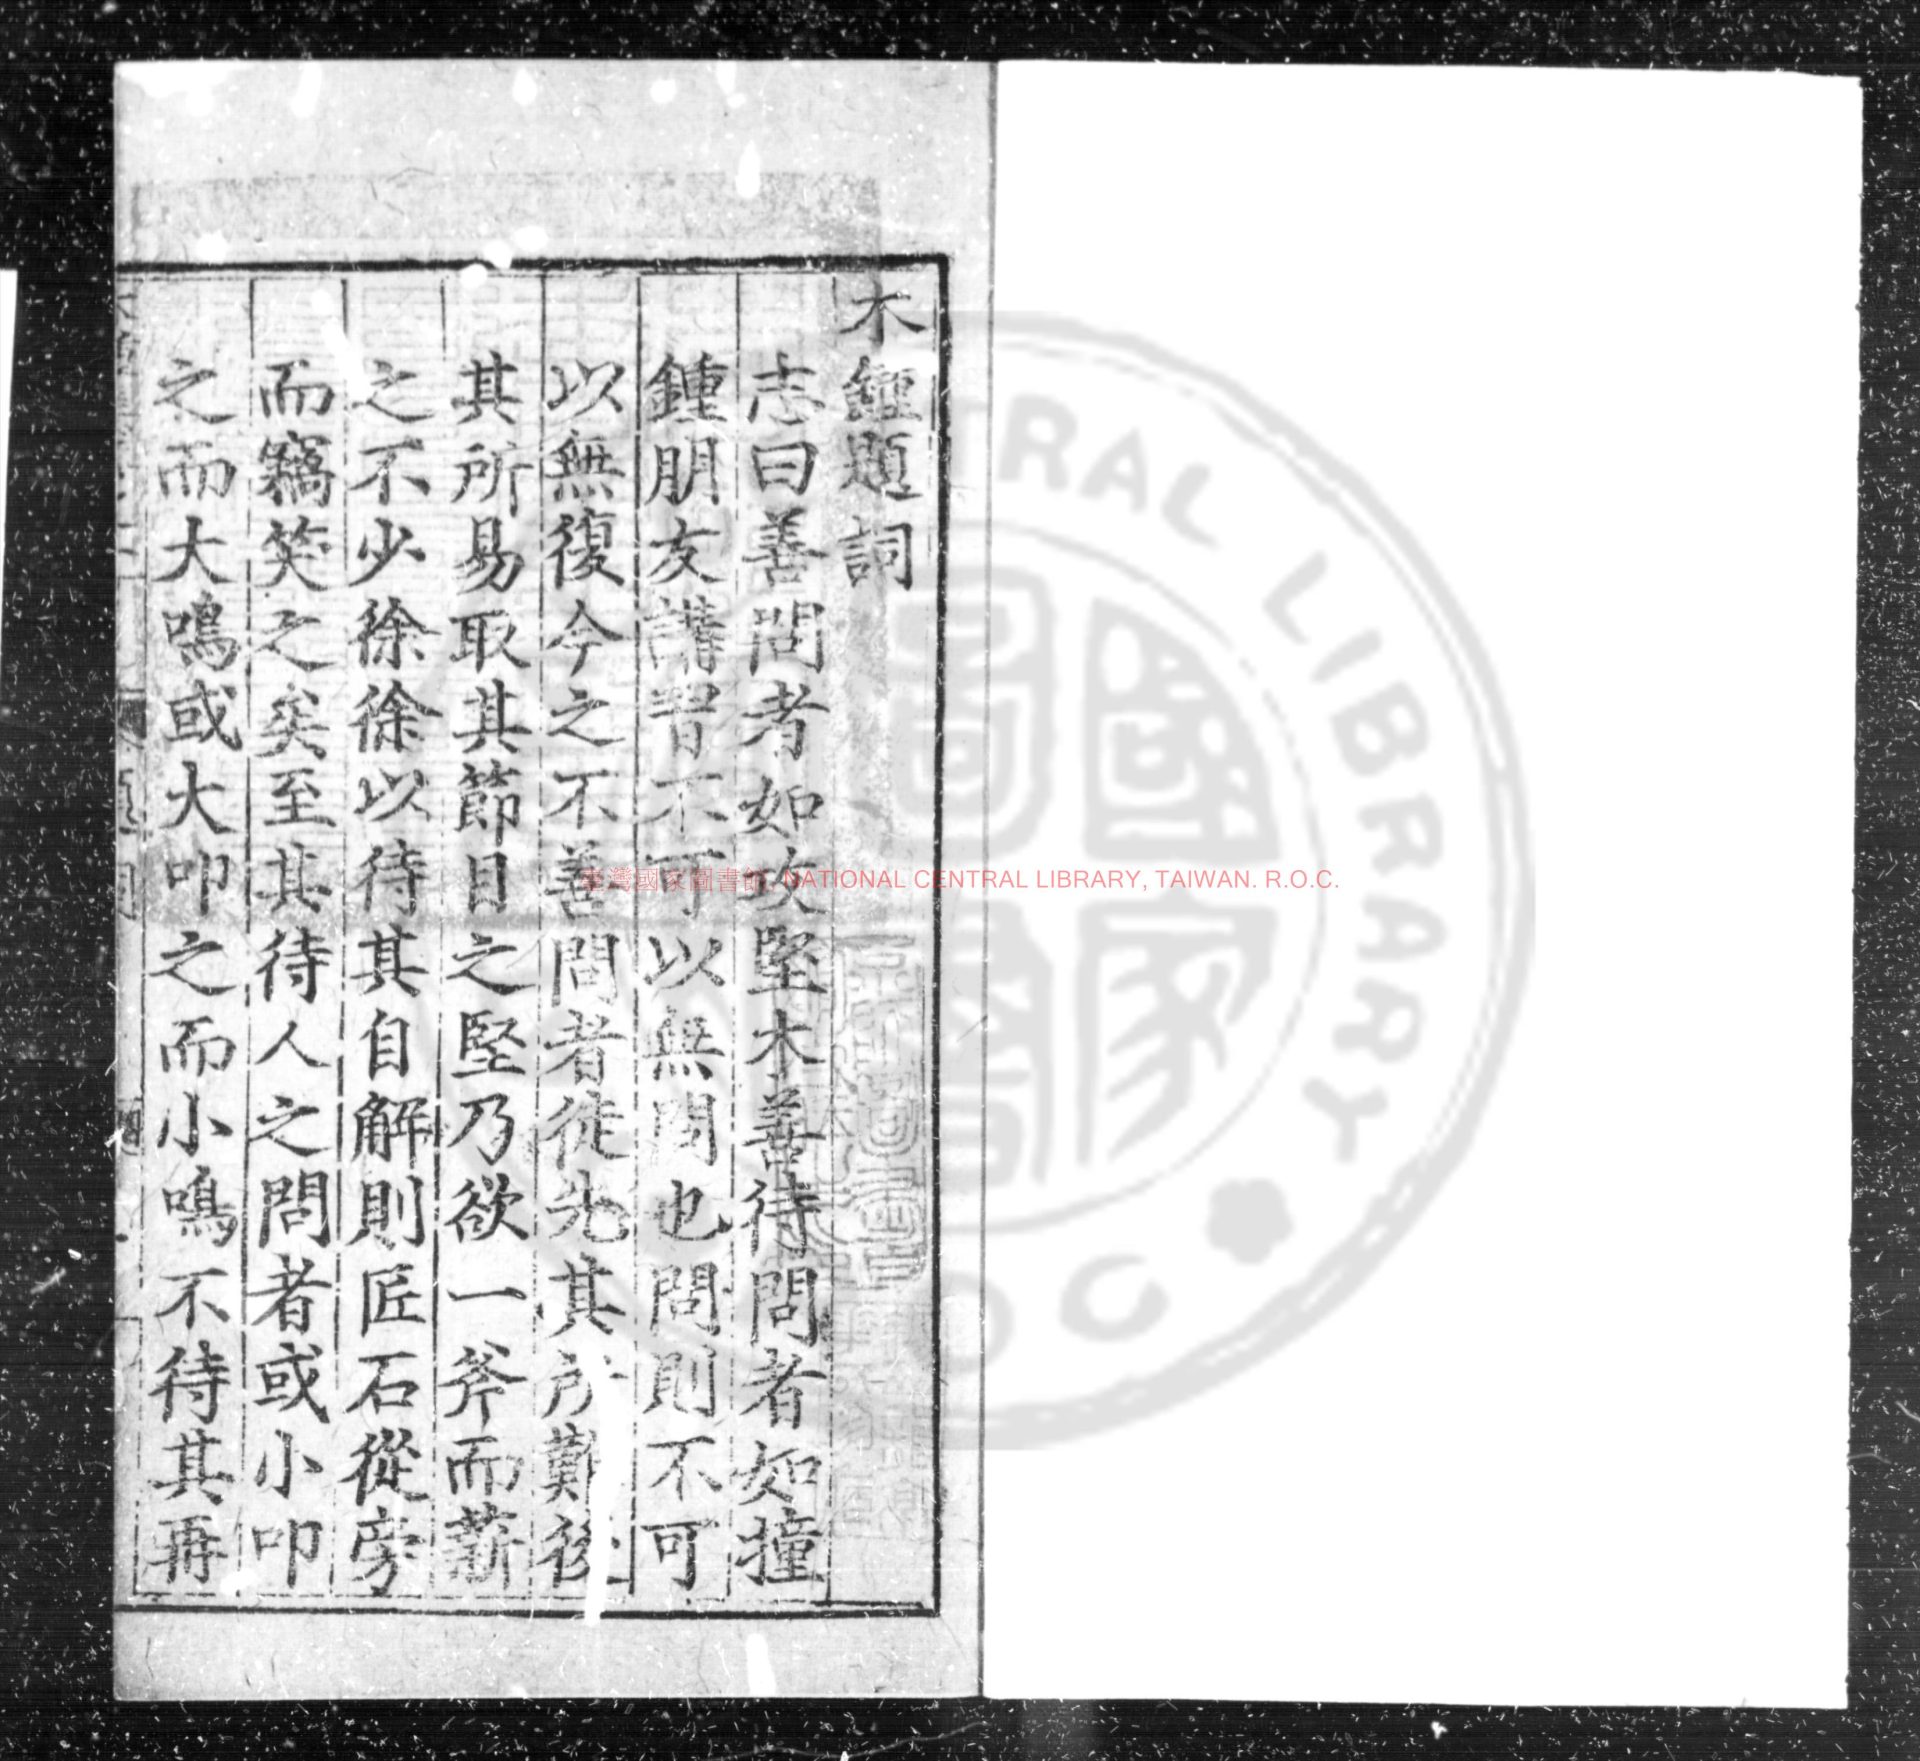 木鍾題詞
志曰善問者如攻堅木善待問者如撞
鍾朋友講習不可以無問也問則不可
以無復今之不善問者徒先其所難後
其所易取其節目之堅乃欲一斧而薪
之不少徐徐以待其自解則匠石從旁
而竊笑之矣至其待人之問者或小叩
之而大鳴或大叩之而小鳴不待其再
臺灣國家圖書館, NATIONAL CENTRAL LIBRARY, TAIWAN. R.O.C.